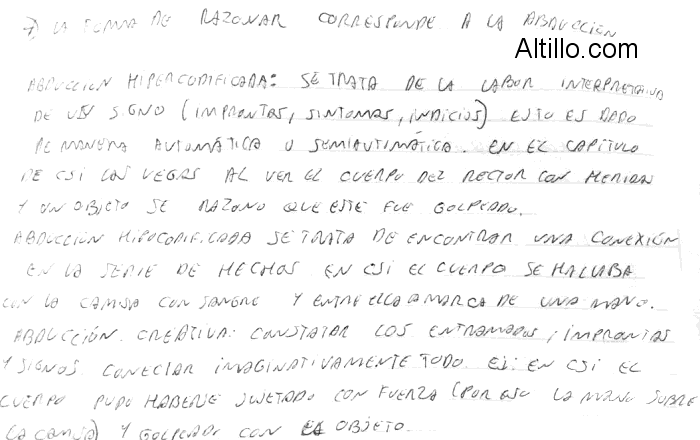 7) LA FORMA DE RAZONAR CORRESPONDE A LA ABDUCCIÓN
Altillo.com
ABDUCCION HIPERCODIFICADA: SE TRATA DE LA LABOR INTERPRETATIVA
DE UN SIGNO (IMPRONTAS, SINTOMAS, INDICIOS) ESTO ES DADO
DE MANERA AUTOMÁTICA O SEMIAUTIMÁTICA. EN EL CAPITULO
DE CSI LAS VEGAS AL VER EL CUERPO DEL RECTOR CON HERIDAS
Y UN OBJETO SE RAZONO QUE ESTE FUE GOLPEADO.
ABDUCCIÓN HIPOCODIFICADA SE TRATA DE ENCONTRAR UNA CONEXIÓN
EN LA SERIE DE HECHOS. EN CSI EL CUERPO SE HALLABA
CON LA CAMISA CON SANGRE Y ENTRE ELLA LA MARCA DE UNA MANO.
ABDUCCIÓN CREATIVA: CONSTATAR LOS ENTRAMADOS, IMPRONTAS
Y SIGNOS. CONECTAR IMAGINATIVAMENTE TODO. EJ: EN CSI EL
CUERPO PUDO HABERSE SUJETADO CON FUERZA (POR ESO LA MANO SOBRE
LA CAMISA) Y GOLPEADO CON EL OBJETO.